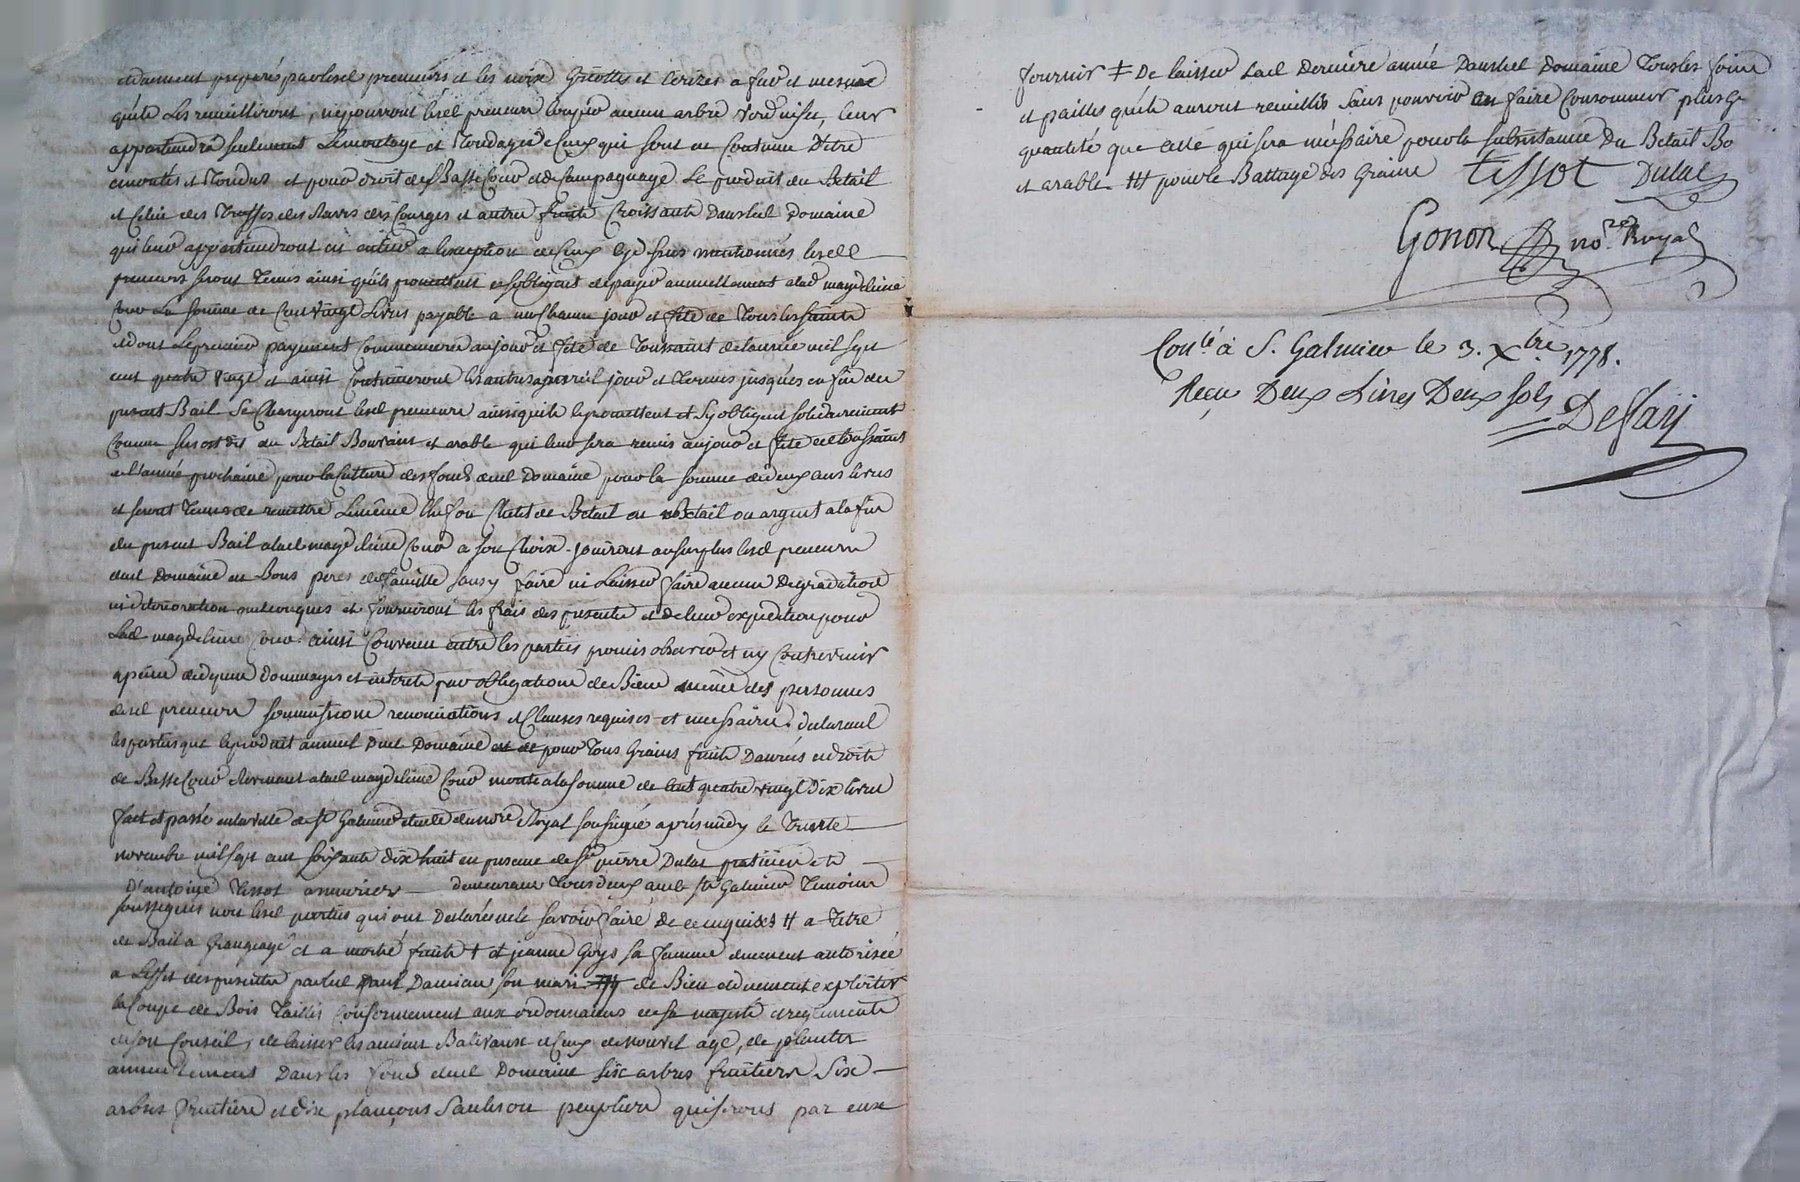 et dument preparé par lesd preneurs et les noix Griottes et Cerizes a fur et mesure
qu'ils les recuilliront, ne pourront lesd preneurs couper aucun arbre verd ni sec, leur
appartiendra seulement Lemontage et Tondage de Ceux qui sont en Coutume D'etre
emontés et Tondus et pour droit de Basse Cour et de Compagnage Le produit du Betail
et Celui des Truffes des Raves des Courges et autres fruits Croissants Dans led Domaine
qui leur appartiendront en entier a lexception de Ceux cy dessus mentionnés lesd
preneurs seront Tenus ainsi qu'ils promettent et s'obligent de payer annuellement a lad magdeleine
Cour La somme de Cent vingt Livres payable a un Chacun jour et fete de Tous les saints
et dont Le premier payement Commencera au jour et fete de Toussaint de lannée mil sept
cent quatre vingt et ainsi Continueront les autres a pareil jour et Termes jusques en fin du
present Bail Se Chargeront lesd preneurs ainsi qu'ils le promettent et S'y obligent solidairement
Comme sus est dit du Betail Bouvant et arable qui leur sera remis au jour et fete de Toussaint
de l'année prochaine pour la Culture des fonds dud Domaine pour la somme de deux cens livres
et seront Tenus de remettre Le même Chef ou Cheti de Betail en Betail ou argent a la fin
du present Bail a lad magdeleine Cour a son Choix. jouiront au surplus lesd preneurs
dud Domaine en Bons peres de famille sans y faire ni Laisser faire aucune Degradation
ni deterioration quelconques et fourniront les frais des presentes et de leur expedition pour
Lad magdeleine Cour. ainsi Convenu entre les parties promis observer et n'y Contrevenir
a peine de depens Dommages et interets par obligations de Biens même des personnes
desd preneurs soumissions renonciations et Clauses requises et necessaires. declarant
les parties que le produit annuel Dud Domaine pour Tous Grains fruits Danrées et droits
de Basse Cour Revenant a lad magdeleine Cour monte a la somme de Cent quatre vingt Dix livres
fait et passé en la ville de St Galmier etude du nore Royal soussigné après midy le Trente
novembre mil sept cent soixante dix huit en presence de Sr pierre Dulac praticien et de
D'antoine Tissot armurier demeurant Tous deux aud St Galmier Temoins
soussignés non lesd parties qui ont Declaré ne le savoir faire de ce enquis ++ a Titre
de Bail a Grangeage et a moitié fruits + et jeanne Goys sa femme duement autorisée
a Leffet des presentes par led Paul Damian son mari. de Bien et duement exploiter
la Coupe de Bois Taillis Conformement aux ordonnances de sa majesté et reglements
de son Conseil, de laisser les anciens Balivaux et Ceux de nouvel age, de planter
annuellement Dans les fonds dud Domaine six arbres fruitiers Six
arbres fruitiers et dix plançons Saules ou peupliers qui seront par eux
fournir ‡ De laisser Lad Derniere année Dans led Domaine Tous les foins
et pailles qu'ils auront recuillis sans pouvoir en faire Consommer plus Gr
quantité que Celle qui sera nécessaire pour la subsistance Du Betail Bo
et arable. ttt pour le Battage des Grains Tissot Dulac
Gonon nore Royal
Con.lé à S. Galmier le 3. Xbre 1778.
Reçu Deux Livres Deux sols
Defarj